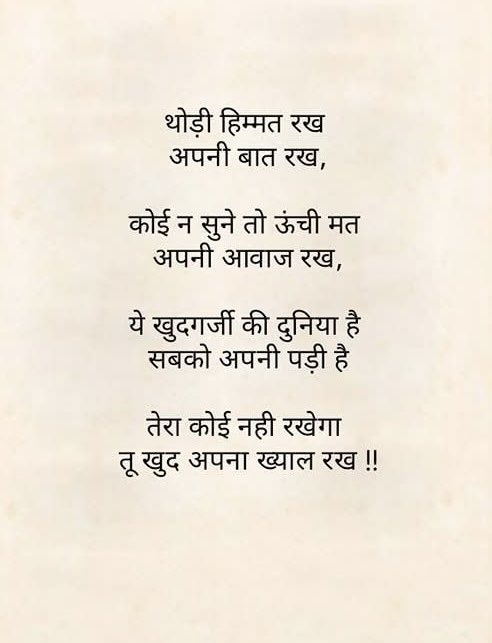 थोड़ी हिम्मत रख
अपनी बात रख,
कोई न सुने तो ऊंची मत
अपनी आवाज रख,
ये खुदगर्जी की दुनिया है
सबको अपनी पड़ी है
तेरा कोई नही रखेगा
तू खुद अपना ख्याल रख !!